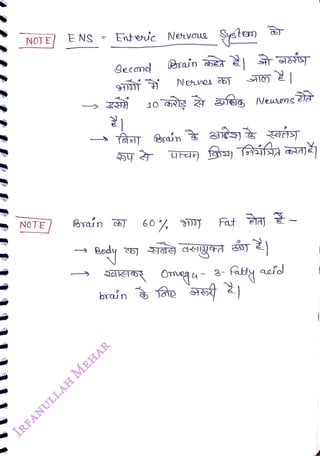 NOTE ENS = Enteric Nervous System को
Second Brain कहते है| जो जठरांत्र
भागों में Nerves का जाल है|
→ इसमें 10 करोड़ से अधिक Neurons होते
है|
→ बिना Brain के आदेश के स्वतंत्र
रूप से पाचन क्रिया नियंत्रित करता है|
NOTE Brain का 60% भाग Fat होता है -
→ Body का सबसे वसायुक्त अंग है|
→ खासकर Omega-3-fatty acid
brain के लिए जरूरी है|
IRFANULLAH MEHAR